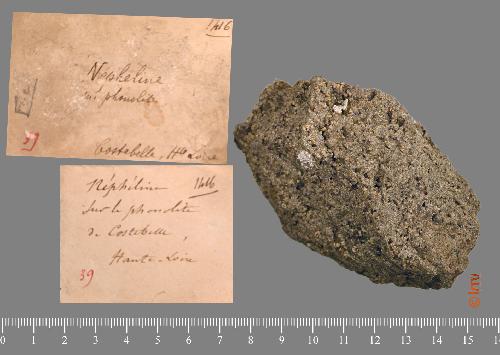 1416
Népheline
sur phonolite
Costebelle, Hte Loire
39
Néphéline 1416
sur le phonolite
de Costebelle,
Haute-Loire
39
0 1 2 3 4 5 6 7 8 9 10 11 12 13 14 15 16